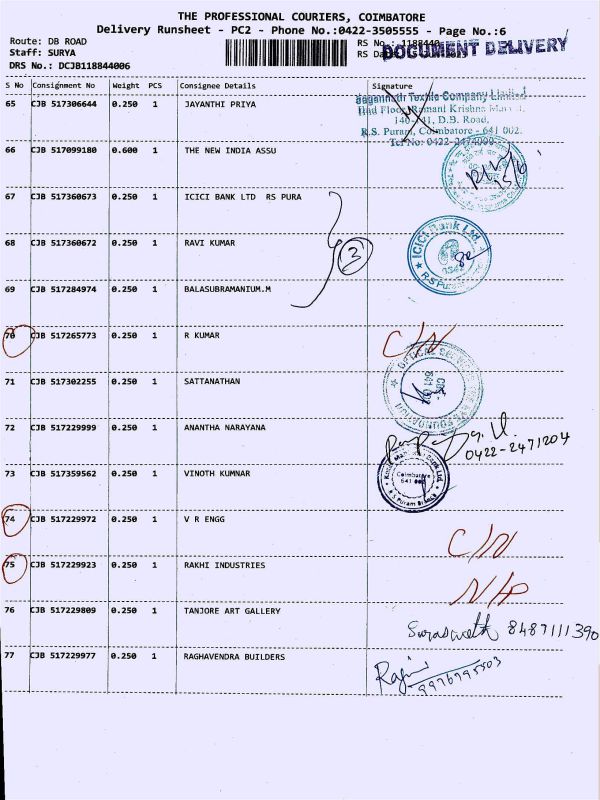 THE PROFESSIONAL COURIERS, COIMBATORE
Delivery Runsheet - PC2 - Phone No.:0422-3505555 - Page No.:6
Route: DB ROAD
Staff: SURYA
DRS No.: DCJB118844006
RS No.: 1188440
RS Da
DOCUMENT DELIVERY
S No Consignment No Weight PCS Consignee Details Signature
65 CJB 517306644 0.250 1 JAYANTHI PRIYA
Textile Company Limited
IInd Floor, Ramani Krishna
140-141, D.B. Road,
R.S. Puram, Coimbatore - 641 002.
Tel No: 0422-2474000
66 CJB 517099180 0.600 1 THE NEW INDIA ASSU
67 CJB 517360673 0.250 1 ICICI BANK LTD RS PURA
68 CJB 517360672 0.250 1 RAVI KUMAR
3
ICICI Bank Ltd.
R.S Puram
69 CJB 517284974 0.250 1 BALASUBRAMANIUM.M
70 CJB 517265773 0.250 1 R KUMAR
C/N
71 CJB 517302255 0.250 1 SATTANATHAN
OPTICAL SERVICES
CBE
641 002
72 CJB 517229999 0.250 1 ANANTHA NARAYANA
0422-2471204
73 CJB 517359562 0.250 1 VINOTH KUMNAR
Bank Ltd.
Coimbatore
641 002
R S Puram Branch
74 CJB 517229972 0.250 1 V R ENGG
C/N
75 CJB 517229923 0.250 1 RAKHI INDUSTRIES
N/P
76 CJB 517229809 0.250 1 TANJORE ART GALLERY
8487111390
77 CJB 517229977 0.250 1 RAGHAVENDRA BUILDERS
Rajini
9976795503